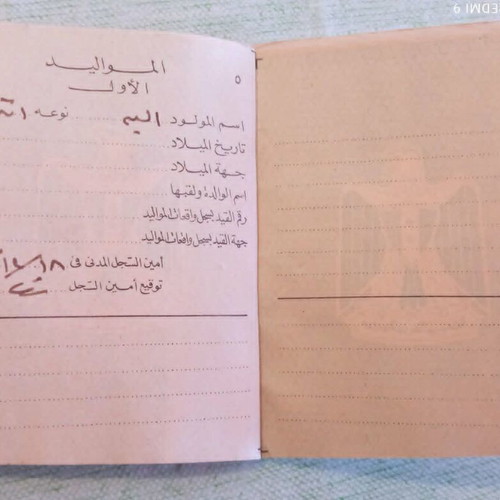 REDMI 9
٥
المواليد
الأول
اسم المولود اليه نوعه
تاريخ الميلاد
جهة الميلاد
اسم الوالدة ولقبها
رقم القيد بسجل واقعات المواليد
جهة القيد بسجل واقعات المواليد
أمين السجل المدنى فى ١٨
توقيع أمين السجل